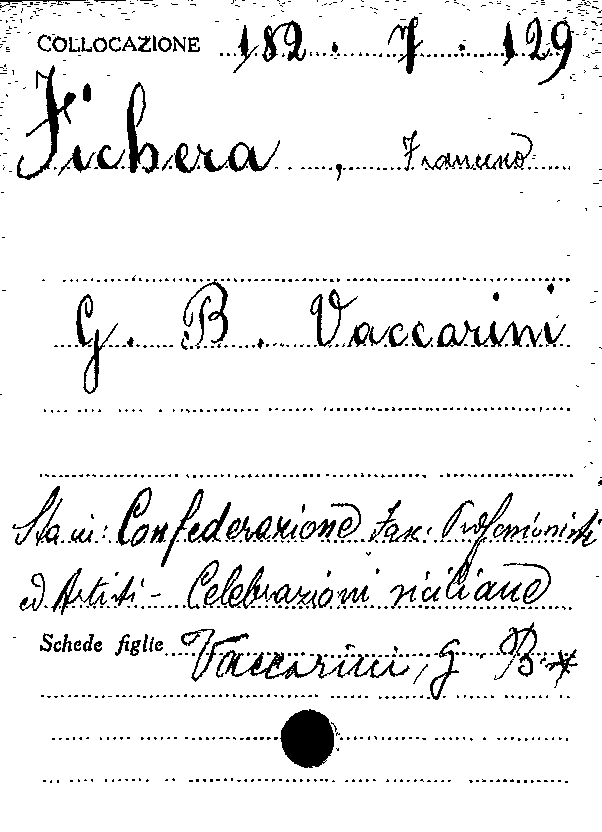 COLLOCAZIONE 182 . 7 . 129
Fichera , Francesco
G. B. Vaccarini
Sta in: Confederazione Fasc. Professionisti
ed Artisti - Celebrazioni siciliane
Schede figlie Vaccarini, G. B. *